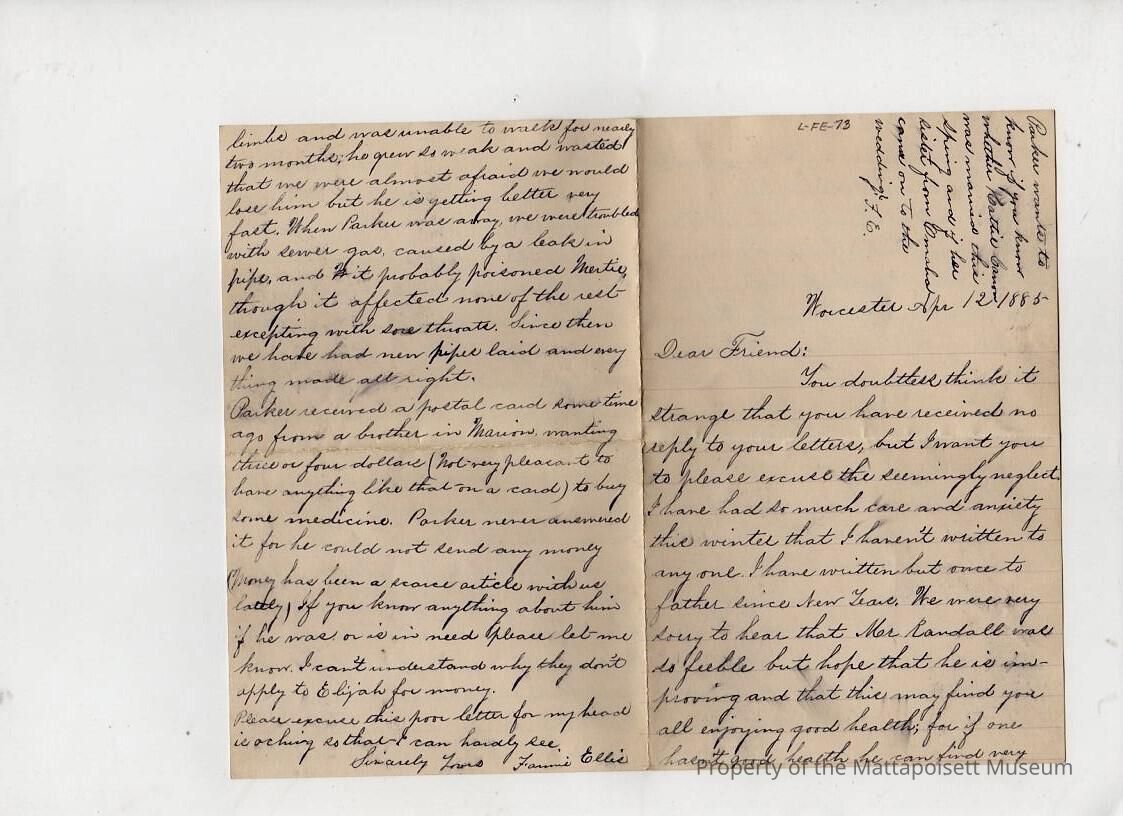 L-FE-73
Parker wants to
know if you know
whether Hattie
was married this
Spring and if her
sister from Omaha
came on to the
wedding. F. E.
Worcester Apr 12 1885
Dear Friend:
You doubtless think it
strange that you have received no
reply to your letters, but I want you
to please excuse the seemingly neglect.
I have had so much care and anxiety
this winter that I haven't written to
any one. I have written but once to
father since New Years. We were very
sorry to hear that Mr Randall was
so feeble but hope that he is im-
proving and that this may find you
all enjoying good health; for if one
hasn't good health he can find very
limbs and was unable to walk for nearly
two months; he grew so weak and wasted
that we were almost afraid we would
lose him but he is getting better very
fast. When Parker was away, we were troubled
with sewer gas, caused by a leak in
pipe, and it probably poisoned Mertie,
though it affected none of the rest
excepting with sore throats. Since then
we have had new pipes laid and every
thing made all right.
Parker received a postal card some time
ago from a brother in Marion, wanting
three or four dollars (Not very pleasant to
have anything like that on a card) to buy
some medicine. Parker never answered
it for he could not send any money
(Money has been a scarce article with us
lately) If you know anything about him
if he was or is in need please let me
know. I can't understand why they don't
apply to Elijah for money.
Please excuse this poor letter for my head
is aching so that I can hardly see.
Sincerely Yours Fannie Ellis
Property of the Mattapoisett Museum